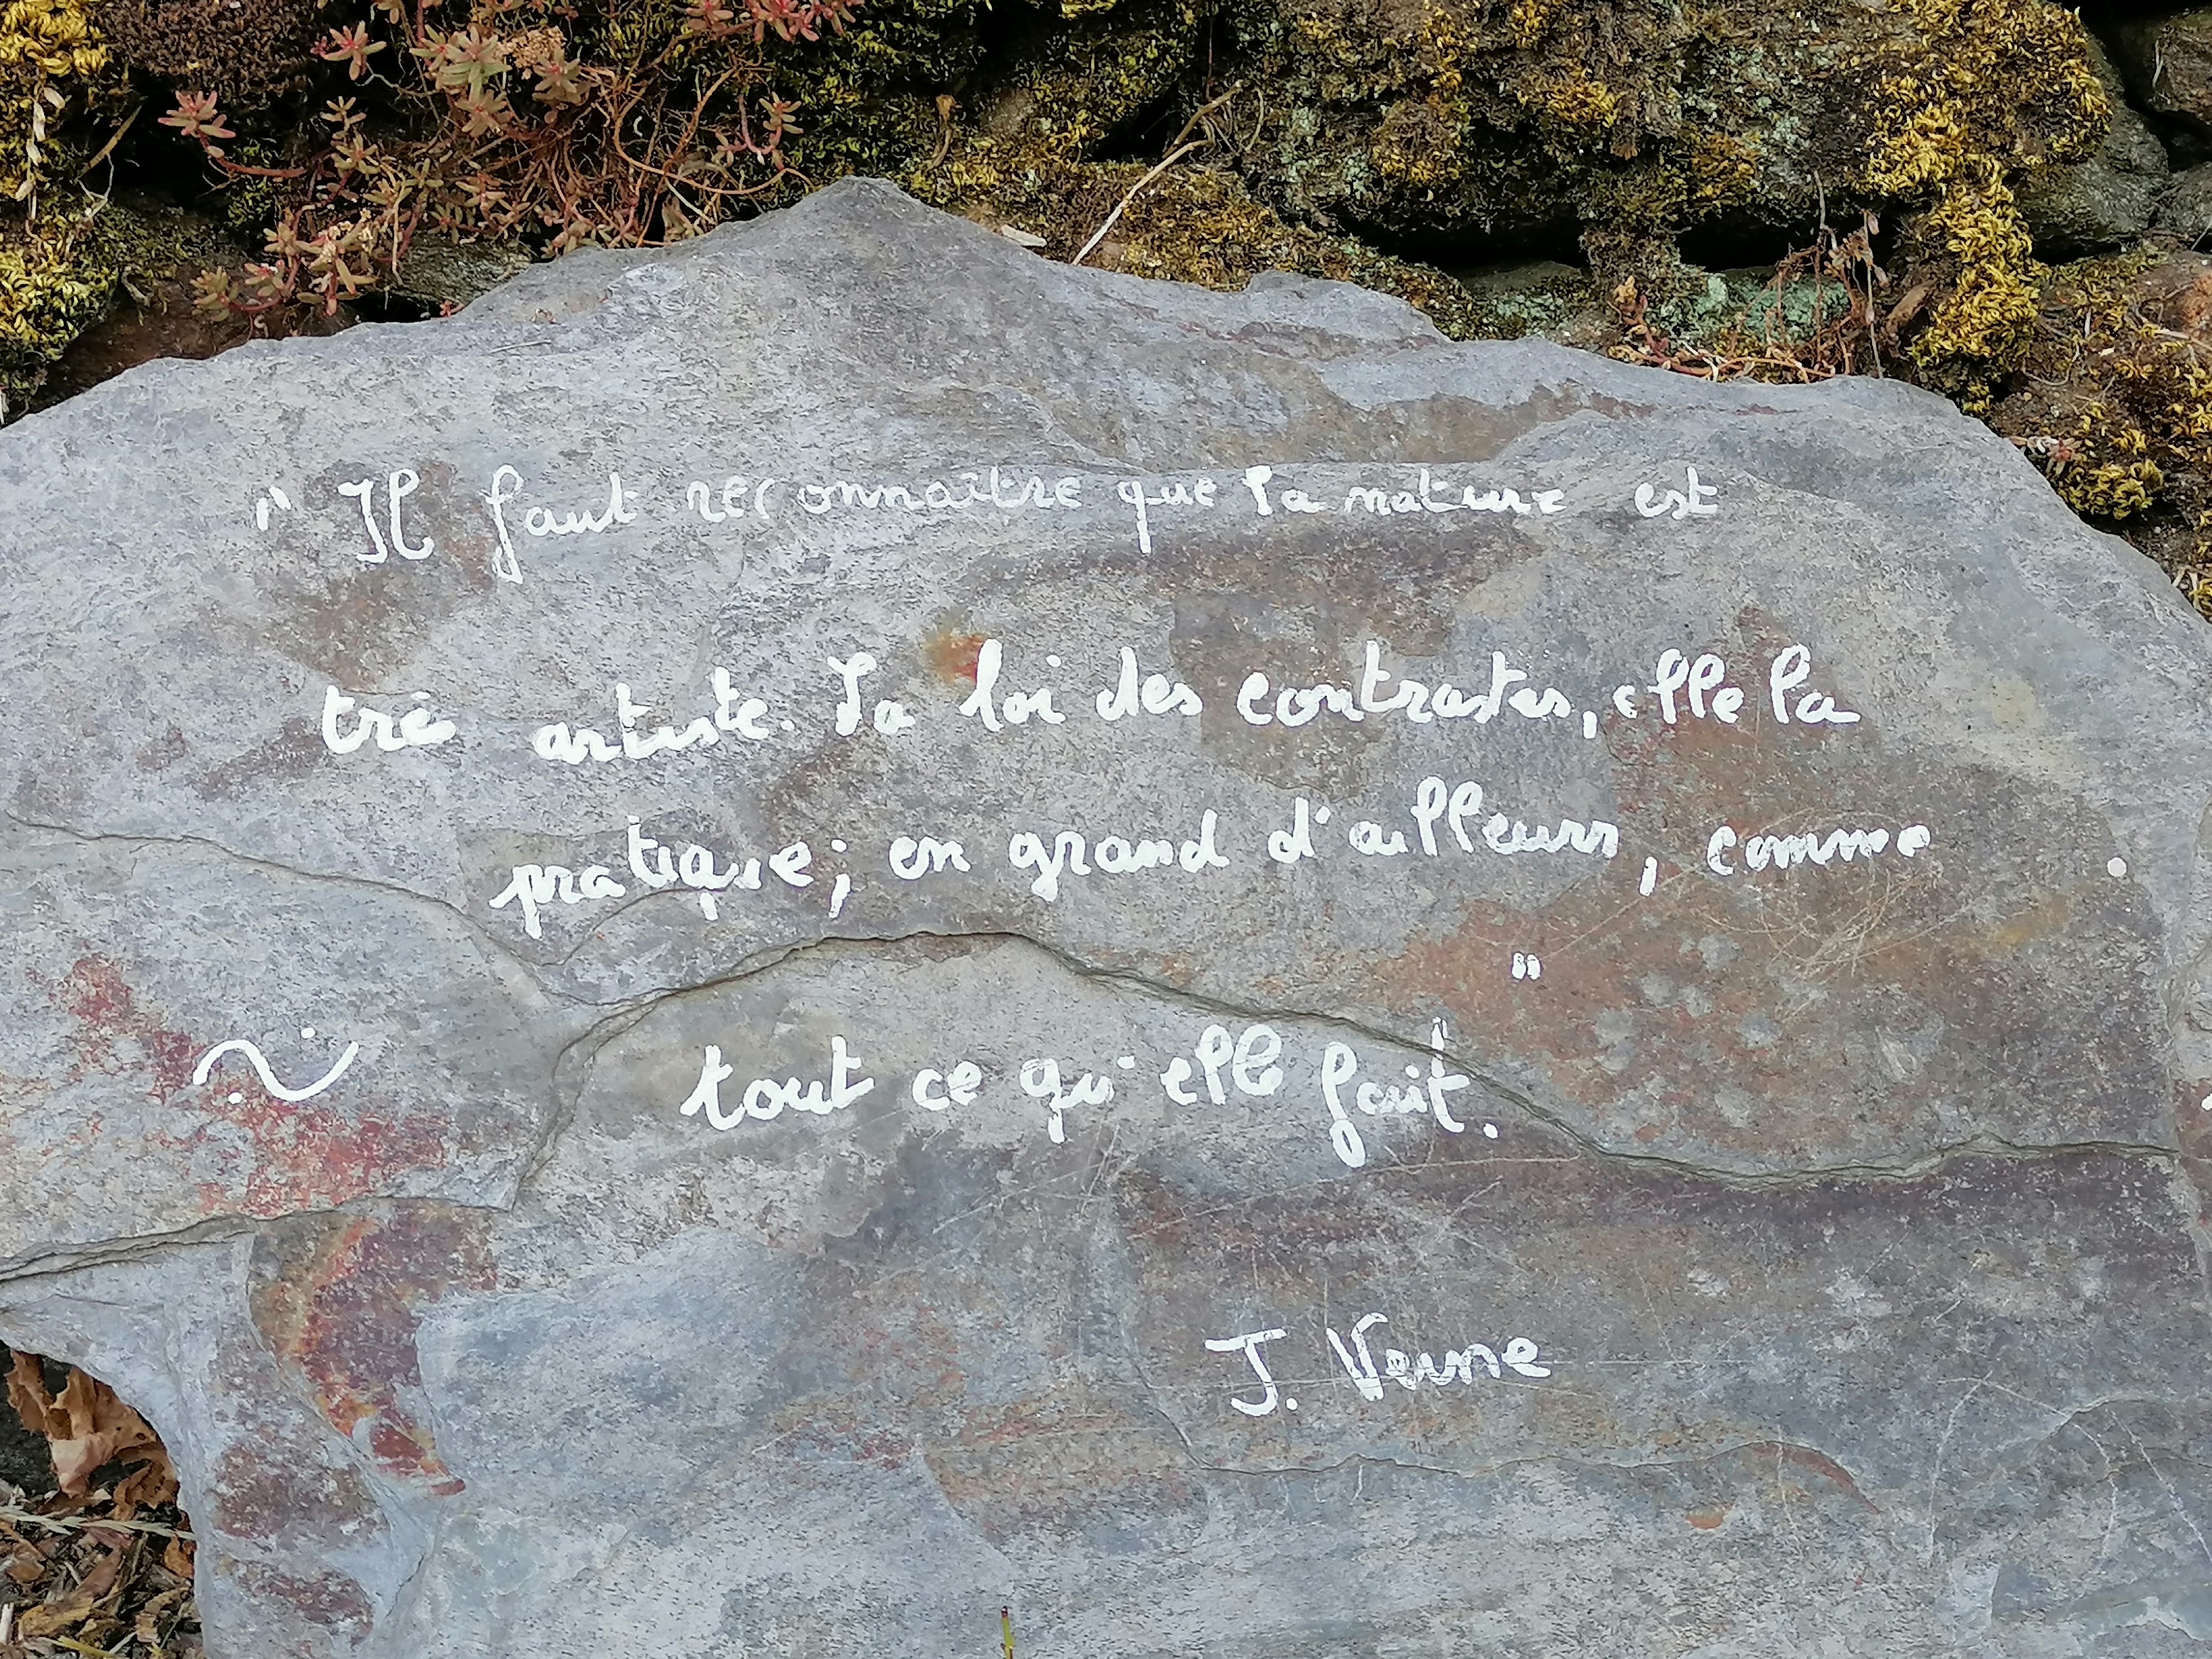 " Il faut reconnaître que la nature est
très artiste. La loi des contrastes, elle la
pratique ; en grand d'ailleurs, comme
tout ce qu'elle fait. "
J. Verne